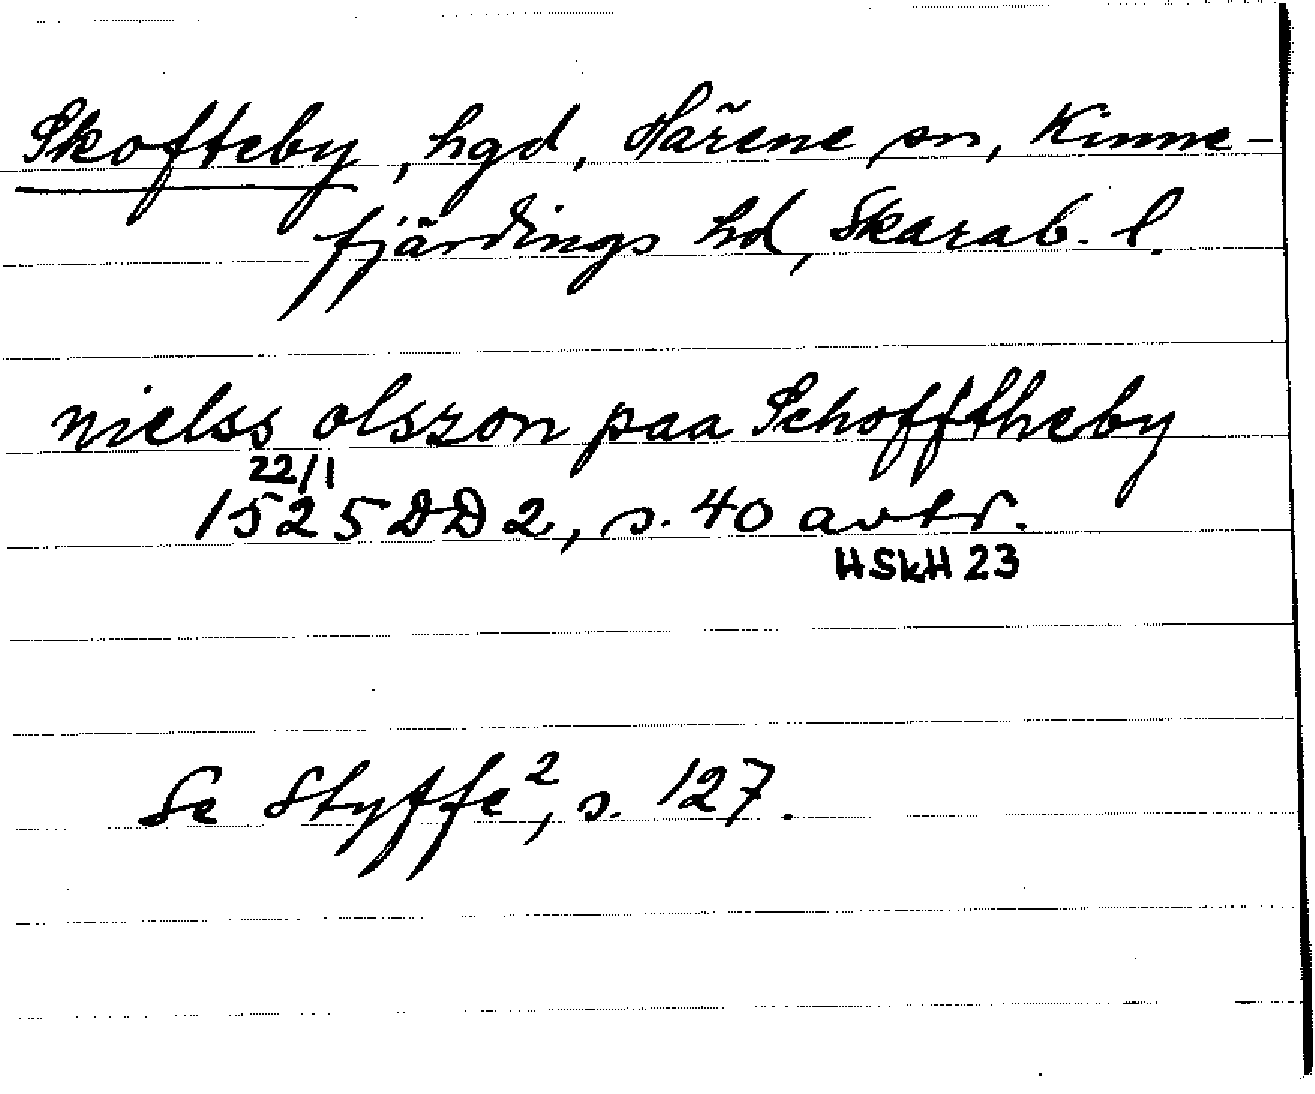 Skofteby, hgd, Härene sn, Kinne-
fjärdings hd, Skarab. l.
nielss olszon paa Schofftheby
22/1
1525 DD 2, s. 40 avtr.
HSkH 23
Se Styffe², s. 127.